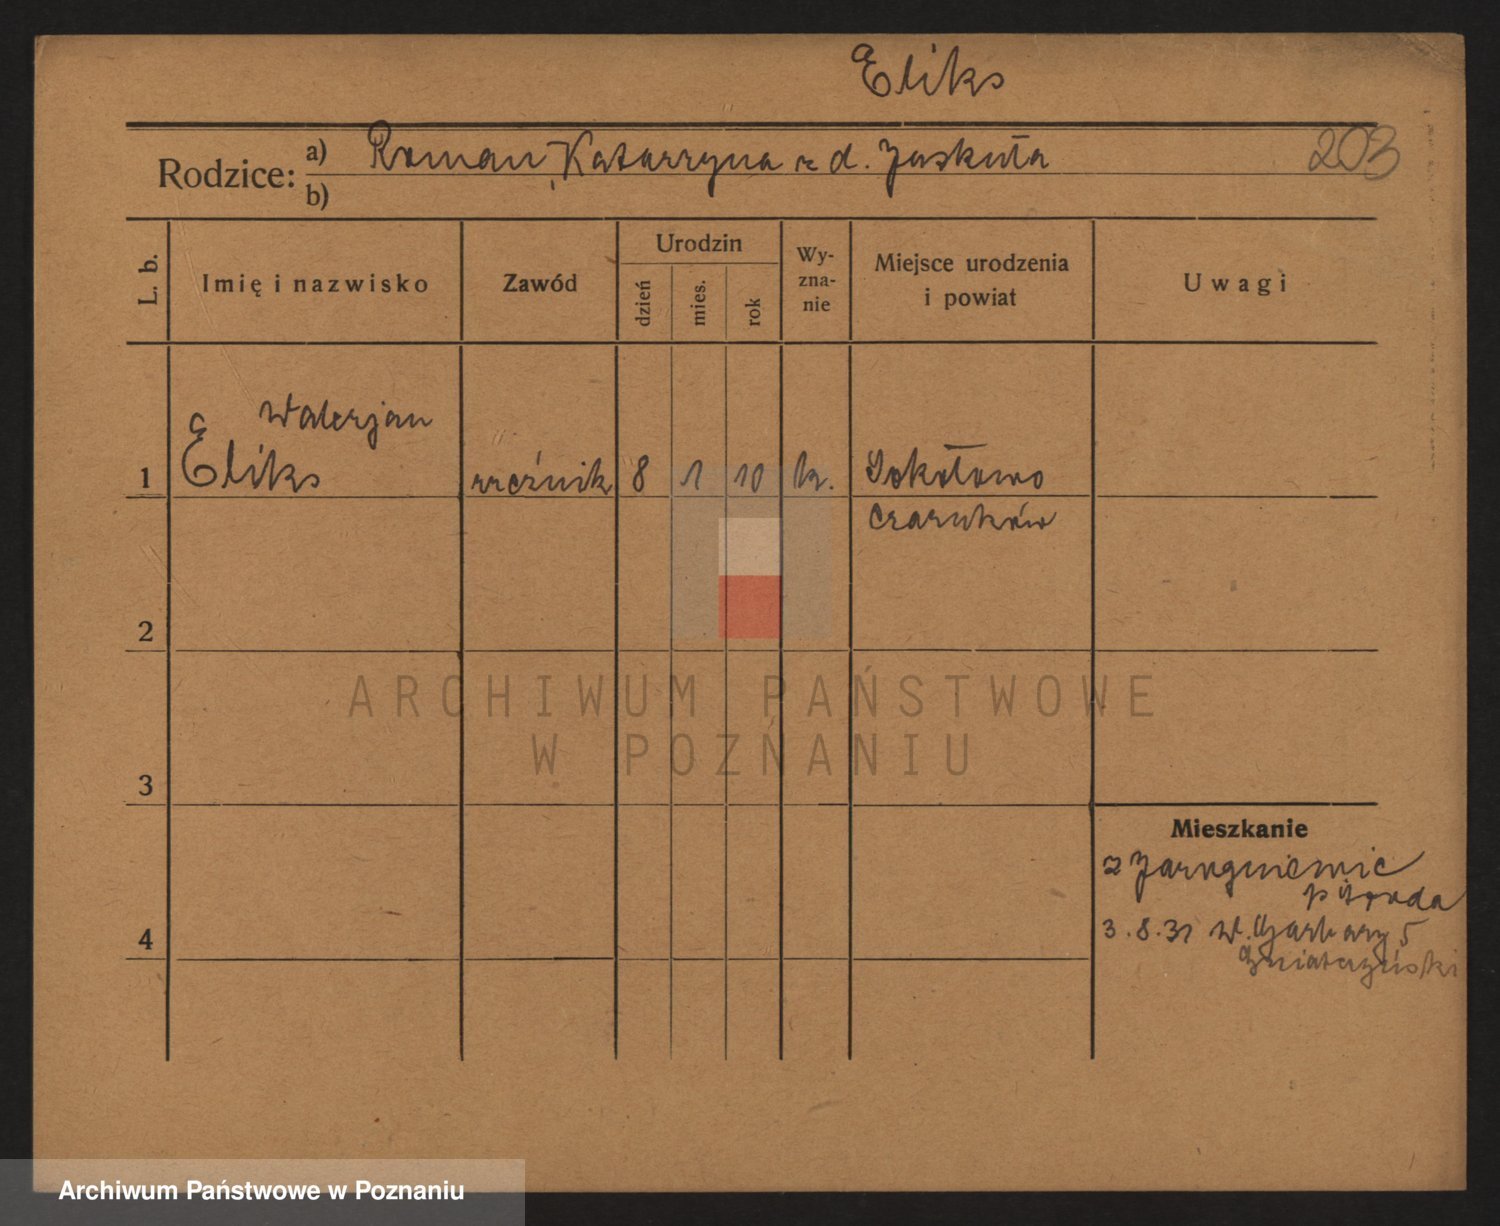 Eliks
Rodzice: a) Roman, Katarzyna z d. Jaskuła
203
b)
L. b.
Imię i nazwisko
Zawód
Urodzin
dzień
mies.
rok
Wy-
zna-
nie
Miejsce urodzenia
i powiat
Uwagi
Walerjan
1 Eliks rzeźnik 8 1 10 k. Sokołowo
Czarnków
2
ARCHIWUM PAŃSTWOWE
W POZNANIU
3
Mieszkanie
z
3.8.31 W. Garbary 5
4
Archiwum Państwowe w Poznaniu